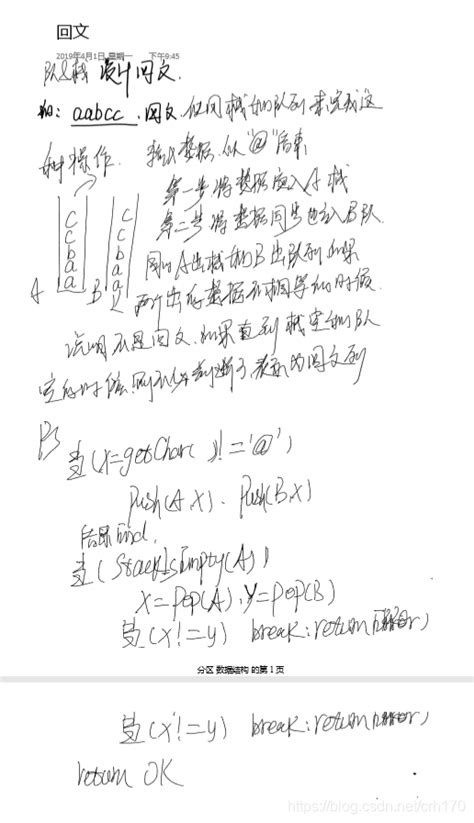 回文
2019年4月1日 星期一 下午9:45
队&栈 设计回文.
如: aabcc. 回文. 利用栈和队列来完成这
种操作. 输入数据. 以"@"结束
第一步将数据放入A栈
第二步将数据同步也放入B队
c c
c c
b b
a a
A a B a
同时A出栈和B出队列如果
两个出的数据不相等的时候.
说明不是回文. 如果直到栈空和队
空的时候. 则 判断了 为回文列
当(x=getChar( )! ='@')
Push(A,X). Push(B,X)
结束End.
当(StackIsEmpty(A))
X=Pop(A). Y=Pop(B)
当(x!=y) break: return(error)
分区 数据结构 的第 1 页
当(x!=y) break: return(error)
return OK
https://blog.csdn.net/crh170